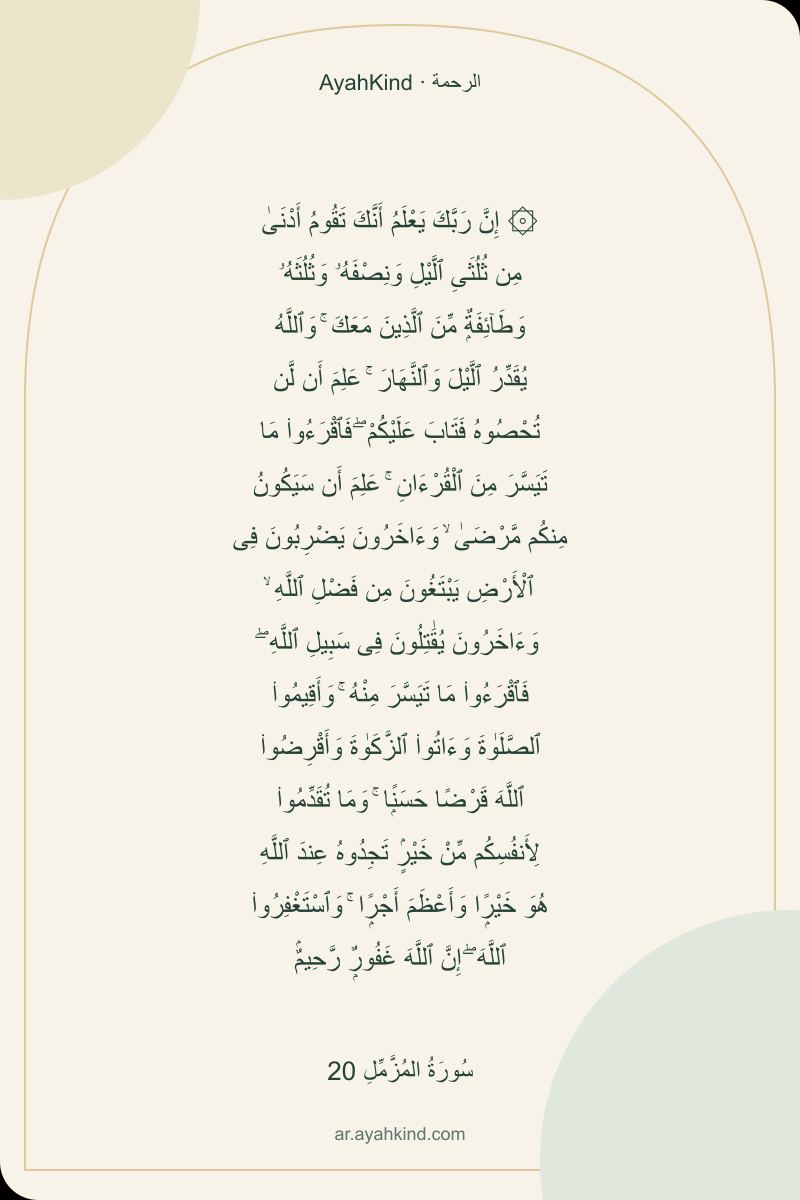 AyahKind · الرحمة
۞ إِنَّ رَبَّكَ يَعْلَمُ أَنَّكَ تَقُومُ أَدْنَىٰ
مِن ثُلُثَىِ ٱلَّيْلِ وَنِصْفَهُۥ وَثُلُثَهُۥ
وَطَآئِفَةٌۭ مِّنَ ٱلَّذِينَ مَعَكَ ۚ وَٱللَّهُ
يُقَدِّرُ ٱلَّيْلَ وَٱلنَّهَارَ ۚ عَلِمَ أَن لَّن
تُحْصُوهُ فَتَابَ عَلَيْكُمْ ۖ فَٱقْرَءُوا۟ مَا
تَيَسَّرَ مِنَ ٱلْقُرْءَانِ ۚ عَلِمَ أَن سَيَكُونُ
مِنكُم مَّرْضَىٰ ۙ وَءَاخَرُونَ يَضْرِبُونَ فِى
ٱلْأَرْضِ يَبْتَغُونَ مِن فَضْلِ ٱللَّهِ ۙ
وَءَاخَرُونَ يُقَٰتِلُونَ فِى سَبِيلِ ٱللَّهِ ۖ
فَٱقْرَءُوا۟ مَا تَيَسَّرَ مِنْهُ ۚ وَأَقِيمُوا۟
ٱلصَّلَوٰةَ وَءَاتُوا۟ ٱلزَّكَوٰةَ وَأَقْرِضُوا۟
ٱللَّهَ قَرْضًا حَسَنًۭا ۚ وَمَا تُقَدِّمُوا۟
لِأَنفُسِكُم مِّنْ خَيْرٍۢ تَجِدُوهُ عِندَ ٱللَّهِ
هُوَ خَيْرًۭا وَأَعْظَمَ أَجْرًۭا ۚ وَٱسْتَغْفِرُوا۟
ٱللَّهَ ۖ إِنَّ ٱللَّهَ غَفُورٌۭ رَّحِيمٌۢ
سُورَةُ المُزَّمِّلِ 20
ar.ayahkind.com